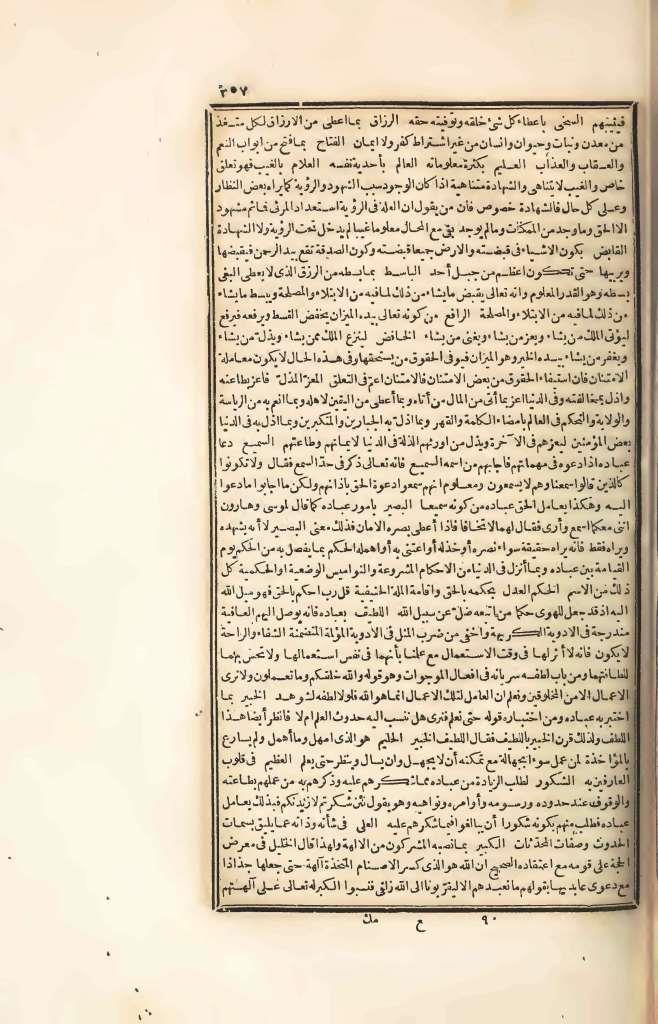 ٣٥٧
فيثيبهم السخى باعطاء كل شئ خلقه وتوفيته حقه الرزاق بما أعطى من الارزاق لكل متغذ
من معدن ونبات وحيوان وانسان من غير اشتراط كفر ولا ايمان الفتاح بما فتح من أبواب النعم
والعقاب والعذاب العليم بكثرة معلوماته العالم بأحدية نفسه العلام بالغيب فهو تعلق
خاص والغيب لا يتناهى والشهادة متناهية اذا كان الوجود سبب الشهود والرؤية كما يراه بعض النظار
وعلى كل حال فالشهادة خصوص فان من يقول ان العلة فى الرؤية استعداد المرئى فما ثم مشهود
الا الحق وما وجد من الممكنات وما لم يوجد بقى مع المحال معلوما غيبا لم يدخل تحت الرؤية ولا الشهادة
القابض بكون الاشياء فى قبضته والارض جميعا قبضته وكون الصدقة تقع بيد الرحمن فيقبضها
ويربيها حتى تكون أعظم من جبل أحد الباسط بما بسطه من الرزق الذى لا يعطى البغى
بسطه وهو القدر المعلوم وانه تعالى يقبض ما يشاء من ذلك لما فيه من الابتلاء والمصلحة ويبسط ما يشاء
من ذلك لما فيه من الابتلاء والمصلحة الرافع من كونه تعالى بيده الميزان يخفض القسط ويرفعه فيرفع
ليؤتى الملك من يشاء ويعز من يشاء ويغنى من يشاء الخافض لينزع الملك ممن يشاء ويذل من يشاء
ويفقر من يشاء بيده الخير وهو الميزان فيوفى الحقوق من يستحقها وفى هذه الحال لا يكون معاملة
الامتنان فان استيفاء الحقوق من بعض الامتنان فالامتنان اعم فى التعلق المعز المذل فاعز بطاعته
واذل بمخالفته وفى الدنيا اعز بما آتى من المال من أتاه وبما أعطى من اليقين لاهله وبما انعم به من الرياسة
والولاية والتحكم فى العالم بامضاء الكلمة والقهر وبما اذل به الجبارين والمتكبرين وبما اذل به فى الدنيا
بعض المؤمنين ليعزهم فى الآخرة ويذل من اورثهم الذلة فى الدنيا لايمانهم وطاعتهم السميع دعا
عباده اذا دعوه فى مهماتهم فأجابهم من اسمه السميع فانه تعالى ذكر فى حد السمع فقال ولا تكونوا
كالذين قالوا سمعنا وهم لا يسمعون ومعلوم انهم سمعوا دعوة الحق باذانهم ولكن ما اجابوا ما دعوا
اليه وهكذا يعامل الحق عباده من كونه سميعا البصير بامور عباده كما قال لموسى وهارون
اننى معكما اسمع وأرى فقال لهما لا تخافا فاذا أعطى بصره الامان فذلك معنى البصير لا أنه يشهده
ويراه فقط فانه يراه حقيقة سواء نصره أو خذله أو اعتنى به أو اهمله الحكم بما يفصل به من الحكم يوم
القيامة بين عباده وبما أنزل فى الدنيا من الاحكام المشروعة والنواميس الوضعية الحكمية كل
ذلك من الاسم الحكم العدل بحكمه بالحق واقامة الملة الحنيفية قل رب احكم بالحق فهو ميل الله
اليه اذ قد جعل للهوى حكما من اتبعه ضل عن سبيل الله اللطيف بعباده فانه يوصل اليهم العافية
مندرجة فى الادوية الكريهة وأخفى من ضرب المثل فى الادوية المؤلمة المتضمنة الشفاء والراحة
لا يكون فانه لا أثر لها فى وقت الاستعمال مع علمنا بأنها فى نفس استعمالها ولا نحس بها
للطافتها ومن باب لطفه سريانه فى افعال الموجودات وهو قوله والله خلقكم وما تعملون ولا نرى
الاعمال الا من المخلوقين ونعلم ان العامل لتلك الاعمال انما هو الله فلولا لطفه لشوهد الخبير بما
اختبر به عباده ومن اختباره قوله حتى نعلم فنرى هل ننسب اليه حدوث العلم ام لا فانظر أيضا هذا
اللطف ولذلك قرن الخبير باللطيف فقال اللطيف الخبير الحليم هو الذى امهل وما أهمل ولم يسارع
بالمؤاخذة لمن عمل سوءا بجهالة مع تمكنه أن لا يجهل وان يسأل وينظر حتى يعلم العظيم فى قلوب
العارفين به الشكور لطلب الزيادة من عباده مما شكرهم عليه وذكرهم به من عملهم بطاعته
والوقوف عند حدوده ورسومه وأوامره ونواهيه وهو يقول لئن شكرتم لازيدنكم فبذلك يعامل
عباده فطلب منهم بكونه شكورا أن يبالغوا فيما شكرهم عليه العلى فى شأنه وذاته عما يليق بسمات
الحدوث وصفات المحدثات الكبير بما نصبه المشركون من الالهة ولهذا قال الخليل فى معرض
الحجة على قومه مع اعتقاده الصحيح ان الله هو الذى كسر الاصنام المتخذة آلهة حتى جعلها جذاذا
مع دعوى عابديها بقولهم ما نعبدهم الا ليقربونا الى الله زلفى فنسبوا الكبر له تعالى على آلهتهم
٩٠ ع مك